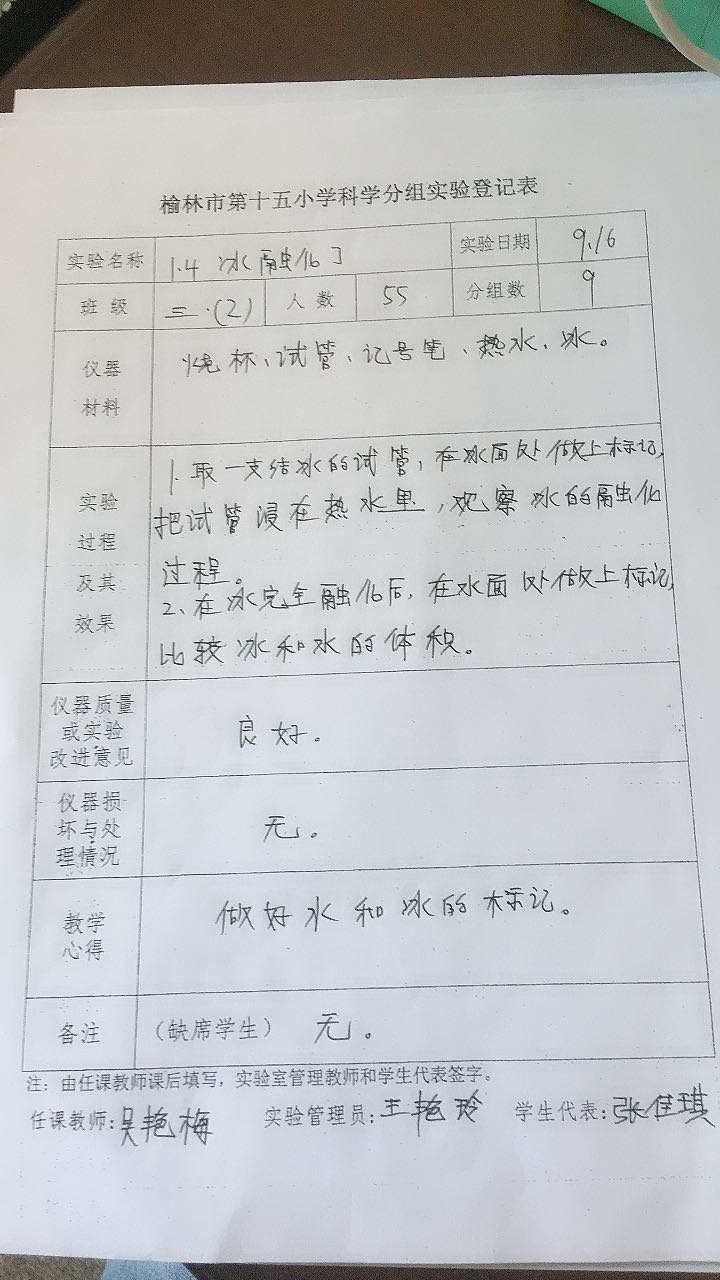 榆林市第十五小学科学分组实验登记表
实验名称 1.4 冰融化了 实验日期 9.16
班 级 三.(2) 人 数 55 分组数 9
仪器
材料
烧杯、试管、记号笔、热水、冰。
实验
过程
及其
效果
1. 取一支结冰的试管,在冰面处做上标记,
把试管浸在热水里,观察冰的融化
过程。
2、在冰完全融化后,在水面处做上标记,
比较冰和水的体积。
仪器质量
或实验
改进意见
良好。
仪器损
坏与处
理情况
无。
教学
心得
做好水和冰的标记。
备注 (缺席学生) 无。
注:由任课教师课后填写,实验室管理教师和学生代表签字。
任课教师:吴艳梅 实验管理员:王艳玲 学生代表:张佳琪